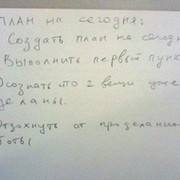 План на сегодня:
Создать план на сегодн
Выполнить первый пунк
Осознать что 2 вещи уже
деланы.
Отдохнуть от проделанно
боты